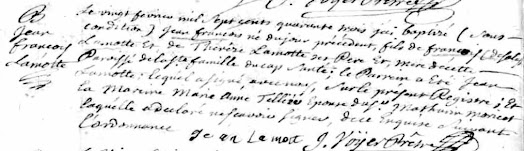 B
Jean
François
Lamotte
Le vingt fevrier mil Sept cents quarante trois j'ai baptisé (Sous
condition) Jean françois né du jour precedent, fils de françois
Lamotte Et de Therèse Lamotte ses Pere Et mere de cette
Paroisse de la ste famille du cap Santé; le Parrein a Eté Jean
Lamotte lequel a signé avec nous, Sur le present Registre; Et
la Mareine Marie Anne Tellier Epouse du Mathurin Morcet
Laquelle a declaré ne scavoir signer, de ce Enquise suivant
L'ordonnance
Jean Lamott J. Voyer Prêtre